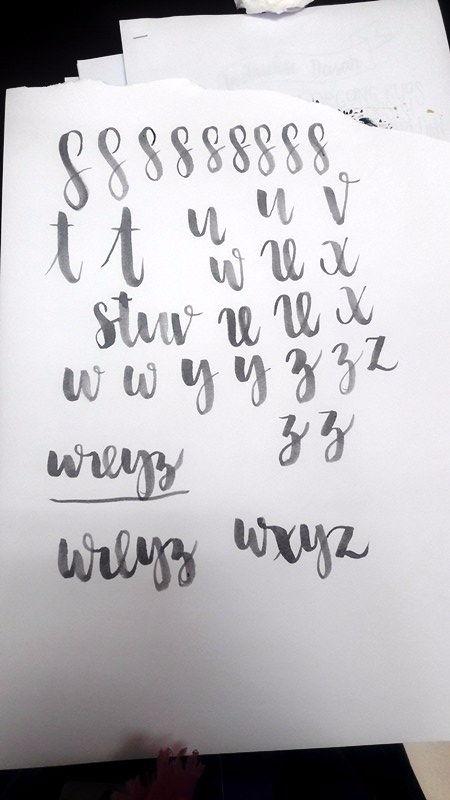 s s s s s s s s s
t t u u v
w x x
stuv x x x
w w y y z z z
z z
wxyz
wxyz wxyz